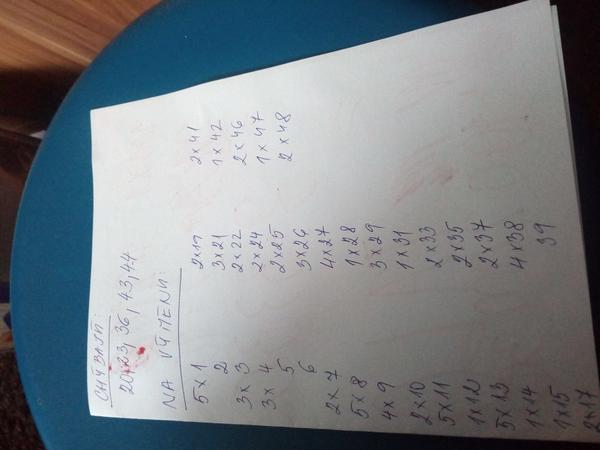 CHÝBAJÚ:
20, 23, 36, 43, 44
NA VÝMENU:
5 x 1
2
3 x 3
3 x 4
5
6
2 x 7
5 x 8
4 x 9
2 x 10
5 x 11
1 x 12
5 x 13
1 x 14
1 x 15
2 x 17
2 x 19
3 x 21
2 x 22
2 x 24
2 x 25
3 x 26
4 x 27
1 x 28
3 x 29
1 x 31
2 x 33
2 x 35
2 x 37
4 x 38
39
2 x 41
1 x 42
2 x 46
1 x 47
2 x 48